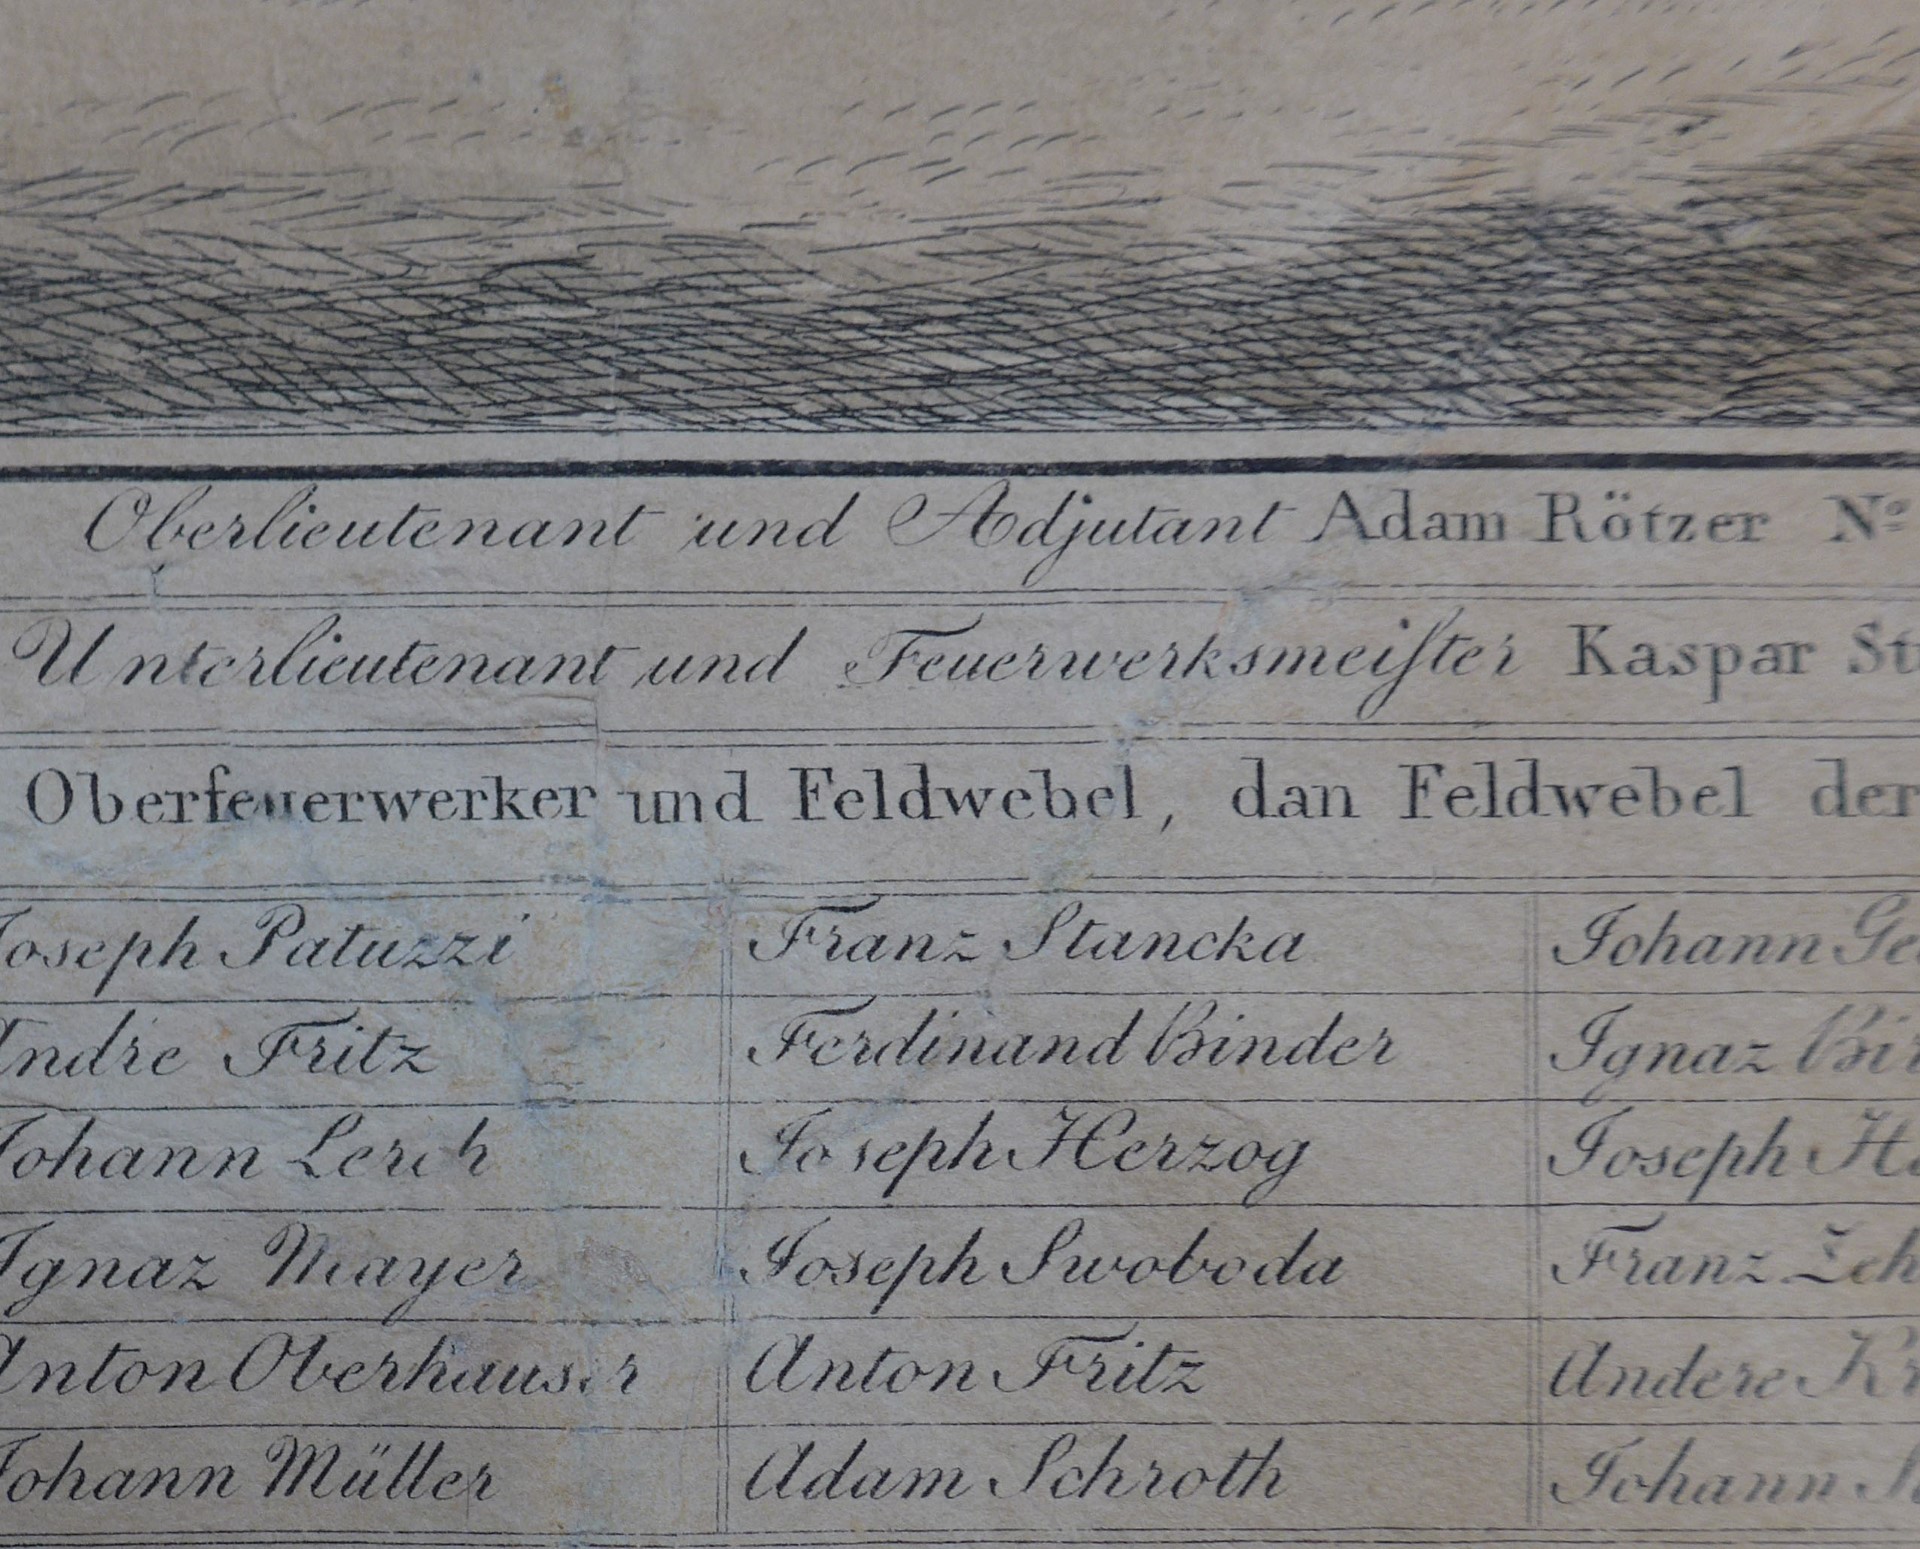 Oberlieutenant und Adjutant Adam Rötzer No
Unterlieutenant und Feuerwerksmeiſter Kaspar St
Oberfeuerwerker und Feldwebel, dan Feldwebel der
Joseph Patuzzi Franz Stancka Johann Ge
Andre Fritz Ferdinand Binder Ignaz Bi
Johann Lerch Joseph Herzog Joseph H
Ignaz Mayer Joseph Swoboda Franz Zeh
Anton Oberhauser Anton Fritz Andere Kr
Johann Müller Adam Schroth Johann